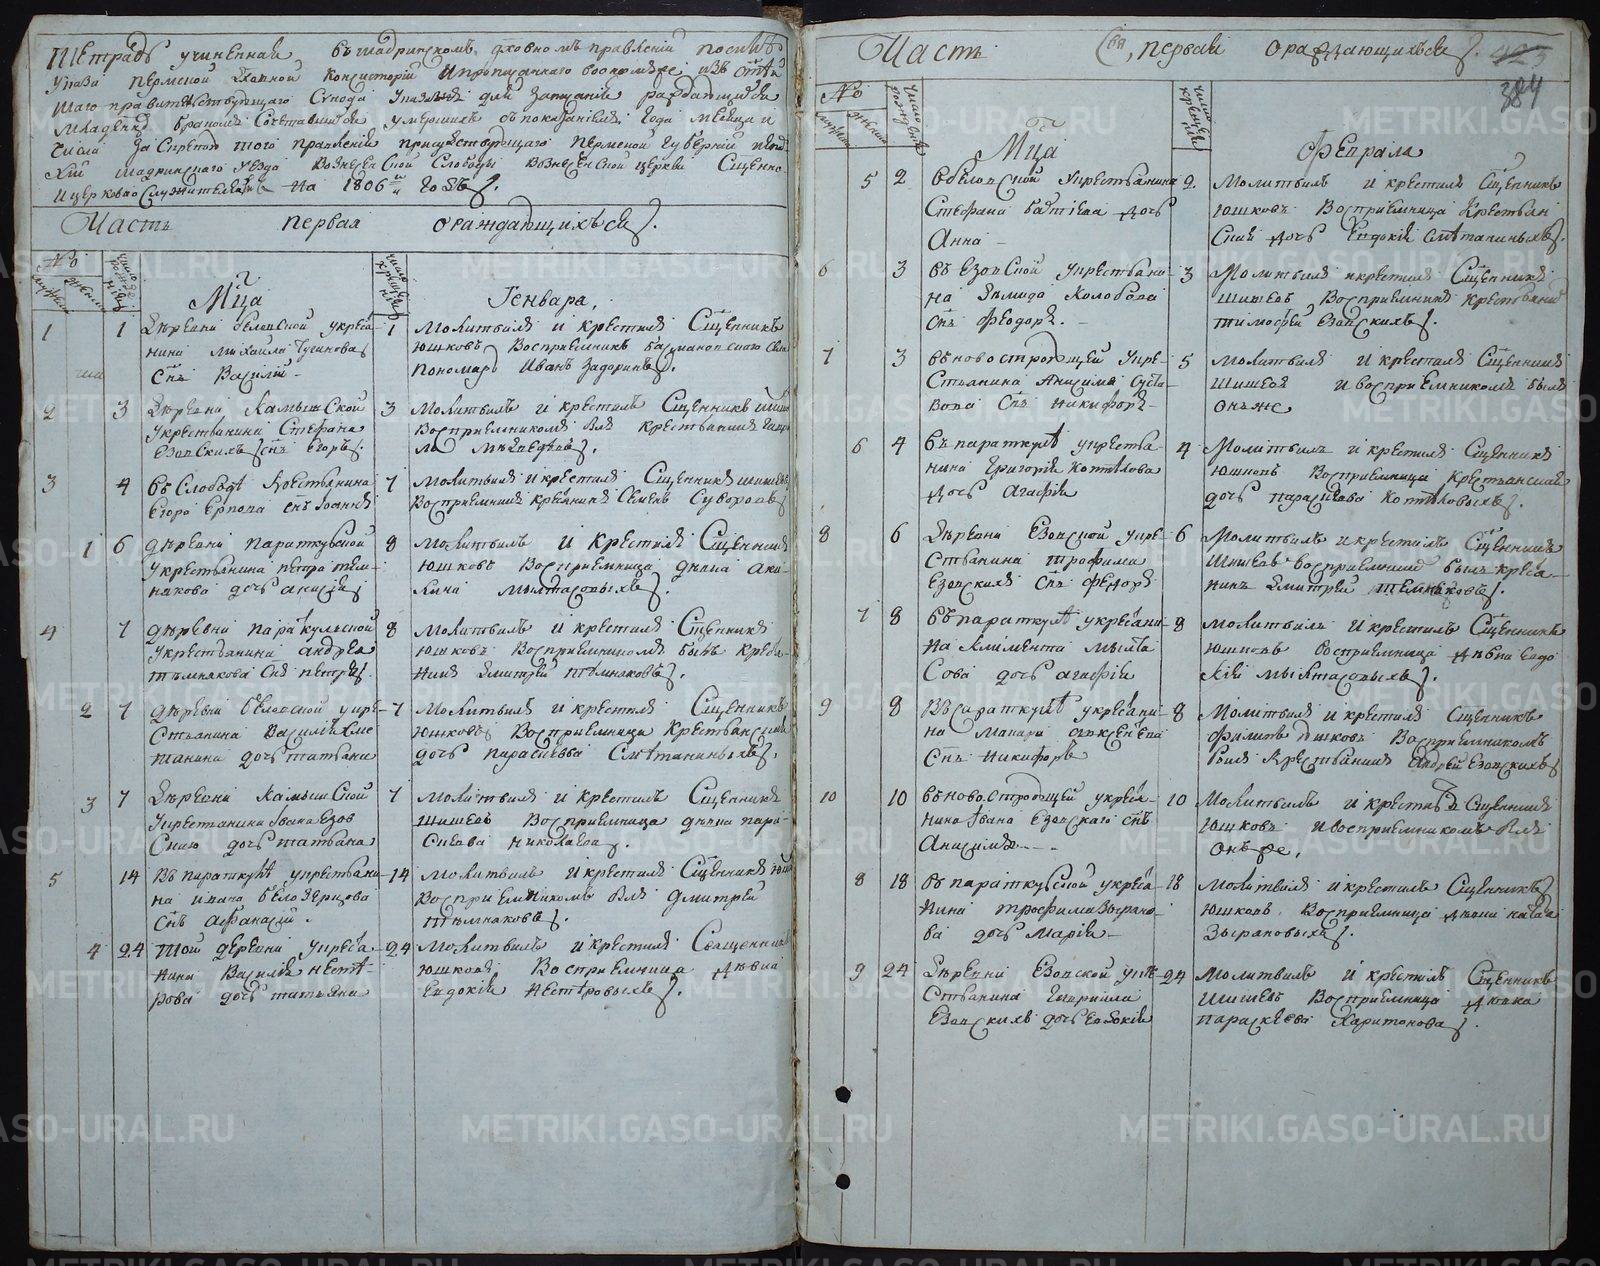 Тетрадь учиненная въ шадринскомъ духовномъ правленїи по силѣ
Указа пермской духовной консисторїи
правителствующаго Сунода Указа для Записанїя раждающихся
Младенцовъ бракомъ Сочетавшихся умершихъ съ показанїемъ года месяца и
числа За Скрепою того правленїя присудствующаго пермской губернїи
шадринскаго уезда Вознесенской Слободы Вознесенской церкви Сщенно
и церковно Служителями на 1806й годъ.
Часть первая о раждающихъся.
№
мужеска
женска
число рожденїя
Мца
число крещенїя
Генвара.
1
1
Деревни белоевской у кресть
янина михаила Чугинова
Снъ Василїй
1
Молитвилъ и крестилъ Сщенникъ
Юшковъ Восприемникъ Села
пономарь Иванъ Задоринъ.
2
3
Деревни Камышской
У крестьянина Стефана
Езовскихъ снъ Егоръ.
3
Молитвилъ и крестилъ Сщенникъ
Восприемникомъ былъ крестьянинъ
3
4
Въ Слободе у крестьянина
Егора Ерпова снъ Іоаннъ
7
Молитвилъ и крестилъ Сщенникъ шишевъ
Восприемникъ кресянинъ Семенъ Суворовъ
1
6
деревни параткульской
У крестьянина петра тем
някова дочь анисїя
8
Молитвилъ и крестилъ Сщенникъ
Юшковъ Восприемница девка аки
лина мылтасовыхъ.
4
7
деревни параткульской
У крестьянина андрея
темнякова Снъ петръ.
8
Молитвилъ и крестилъ Сщенникъ
Юшковъ Восприемникомъ былъ кресья
нинъ Дмитрей темняковъ.
2
7
деревни белоевской у кре
стьянина Василїя Сме
танина дочь татьяна
7
Молитвилъ и крестилъ Сщенникъ
Юшковъ Восприемница Крестьянская
дочь параскевва Сметаниныхъ.
3
7
Деревни Камышской
У крестьянина Ивана Езов
скихъ дочь татьяна
7
Молитвилъ и крестилъ Сщенникъ
Шишевъ Восприемница девка пара
скева Николаева.
5
14
Въ параткуле у крестьяни
на ивана белозерцова
Снъ афанасїй.
14
Молитвилъ и крестилъ Сщенникъ
Восприемникомъ былъ дмитрей
темняковъ.
4
24
Той деревни у креся
нина Василїя несте
рова дочь татьяна
24
Молитвилъ и крестилъ Священникъ
Юшковъ Восприемница девка
Евдокїя нестеровыхъ.
Часть первая о раждающихъся.
384
№
мужеска
женска
число рожденїя
Мца
число крещенїя
Февраля
5
2
Въ белоевской у крестьянина
Стефана дочь
Анна
2
Молитвилъ и крестилъ Сщенникъ
Юшковъ Восприемница Крестьян
ская дочь Евдокїя Сметаниныхъ.
6
3
Въ езовской у крестьяни
на Демида Колобова
Снъ Феодоръ.
3
Молитвилъ и крестилъ Сщенникъ
Шишевъ Восприемникъ крестьянинъ
тимофей Езовскихъ.
7
3
Въ новостроющей у кре
стьянина Анисима Суста
вова Снъ Никифоръ
5
Молитвилъ и крестилъ Сщенникъ
Шишевъ и восприемникомъ былъ
онъ же
6
4
Въ параткуле у крестья
нина Григорїя коптелова
дочь Агафїя
4
Молитвилъ и крестилъ Сщенникъ
Юшковъ Восприемница Крестьянская
дочь параскева Коптеловыхъ.
8
6
Деревни Езовской у кре
стьянина трофима
Езовскихъ Снъ Феодоръ
6
Молитвилъ и крестилъ Сщенникъ
Шишевъ восприемникъ былъ креся
нинъ Дмитрей темняковъ.
7
8
Въ параткуле у кресьяни
на Климента мылта
сова дочь агафїя
8
Молитвилъ и крестилъ Сщенникъ
Юшковъ восприемница девка евдо
кїя мылтасовыхъ.
9
8
Въ параткуле у кресьяни
на Макара
Снъ Никифоръ
8
Молитвилъ и крестилъ Сщенникъ
Филипъ Юшковъ Восприемникомъ
былъ Крестьянинъ Андрей Езовскихъ
10
10
Въ новостроющей у креся
нина Ивана Езовскаго снъ
Анисимъ
10
Молитвилъ и крестилъ Сщенникъ
Юшковъ и восприемникомъ былъ
онъ же.
8
18
Въ параткульской у креся
нина трофима Зырано
ва дочь Марїя
18
Молитвилъ и крестилъ Сщенникъ
Юшковъ Восприемница девка
Зырановыхъ.
9
24
Деревни Езовской у кре
стьянина Гавриила
Езовскихъ дочь Евдокїя
24
Молитвилъ и крестилъ Сщенникъ
Шишевъ Восприемница девка
параскева Харитонова.
METRIKI.GASO-URAL.RU